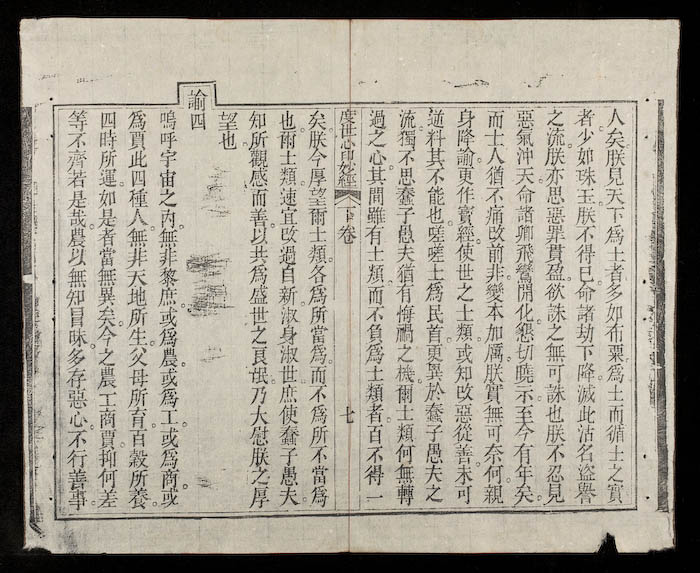 人矣朕見天下爲士者多如布粟爲士而循士之實
者少如珠玉朕不得已命諸劫下降滅此沽名盜譽
之流朕亦思惡罪貫盈欲誅之無可誅也朕不忍見
惡氣沖天命諸卿飛鸞開化懇切曉示至今有年矣
而士人猶不痛改前非變本加厲朕實無可奈何親
身降諭更作寶經使世之士類或知改惡從善未可
逆料其不能也嗟嗟士爲民首更異於蠢子愚夫之
流獨不思蠢子愚夫猶有悔禍之機爾士類何無轉
過之心其間雖有士類而不負爲士類者百不得一
度世心印妙經 下卷 七
矣朕今厚望爾士類各爲所當爲而不爲所不當爲
也爾士類速宜改過自新淑身淑世庶使蠢子愚夫
知所觀感而善以共爲盛世之良氓乃大慰朕之厚
望也
諭四
嗚呼宇宙之內無非黎庶或爲農或爲工或爲商或
爲賈此四種人無非天地所生父母所育百穀所養
四時所運如是者當無異矣今之農工商賈抑何差
等不齊若是哉農以無知冒昧多存惡心不行善事